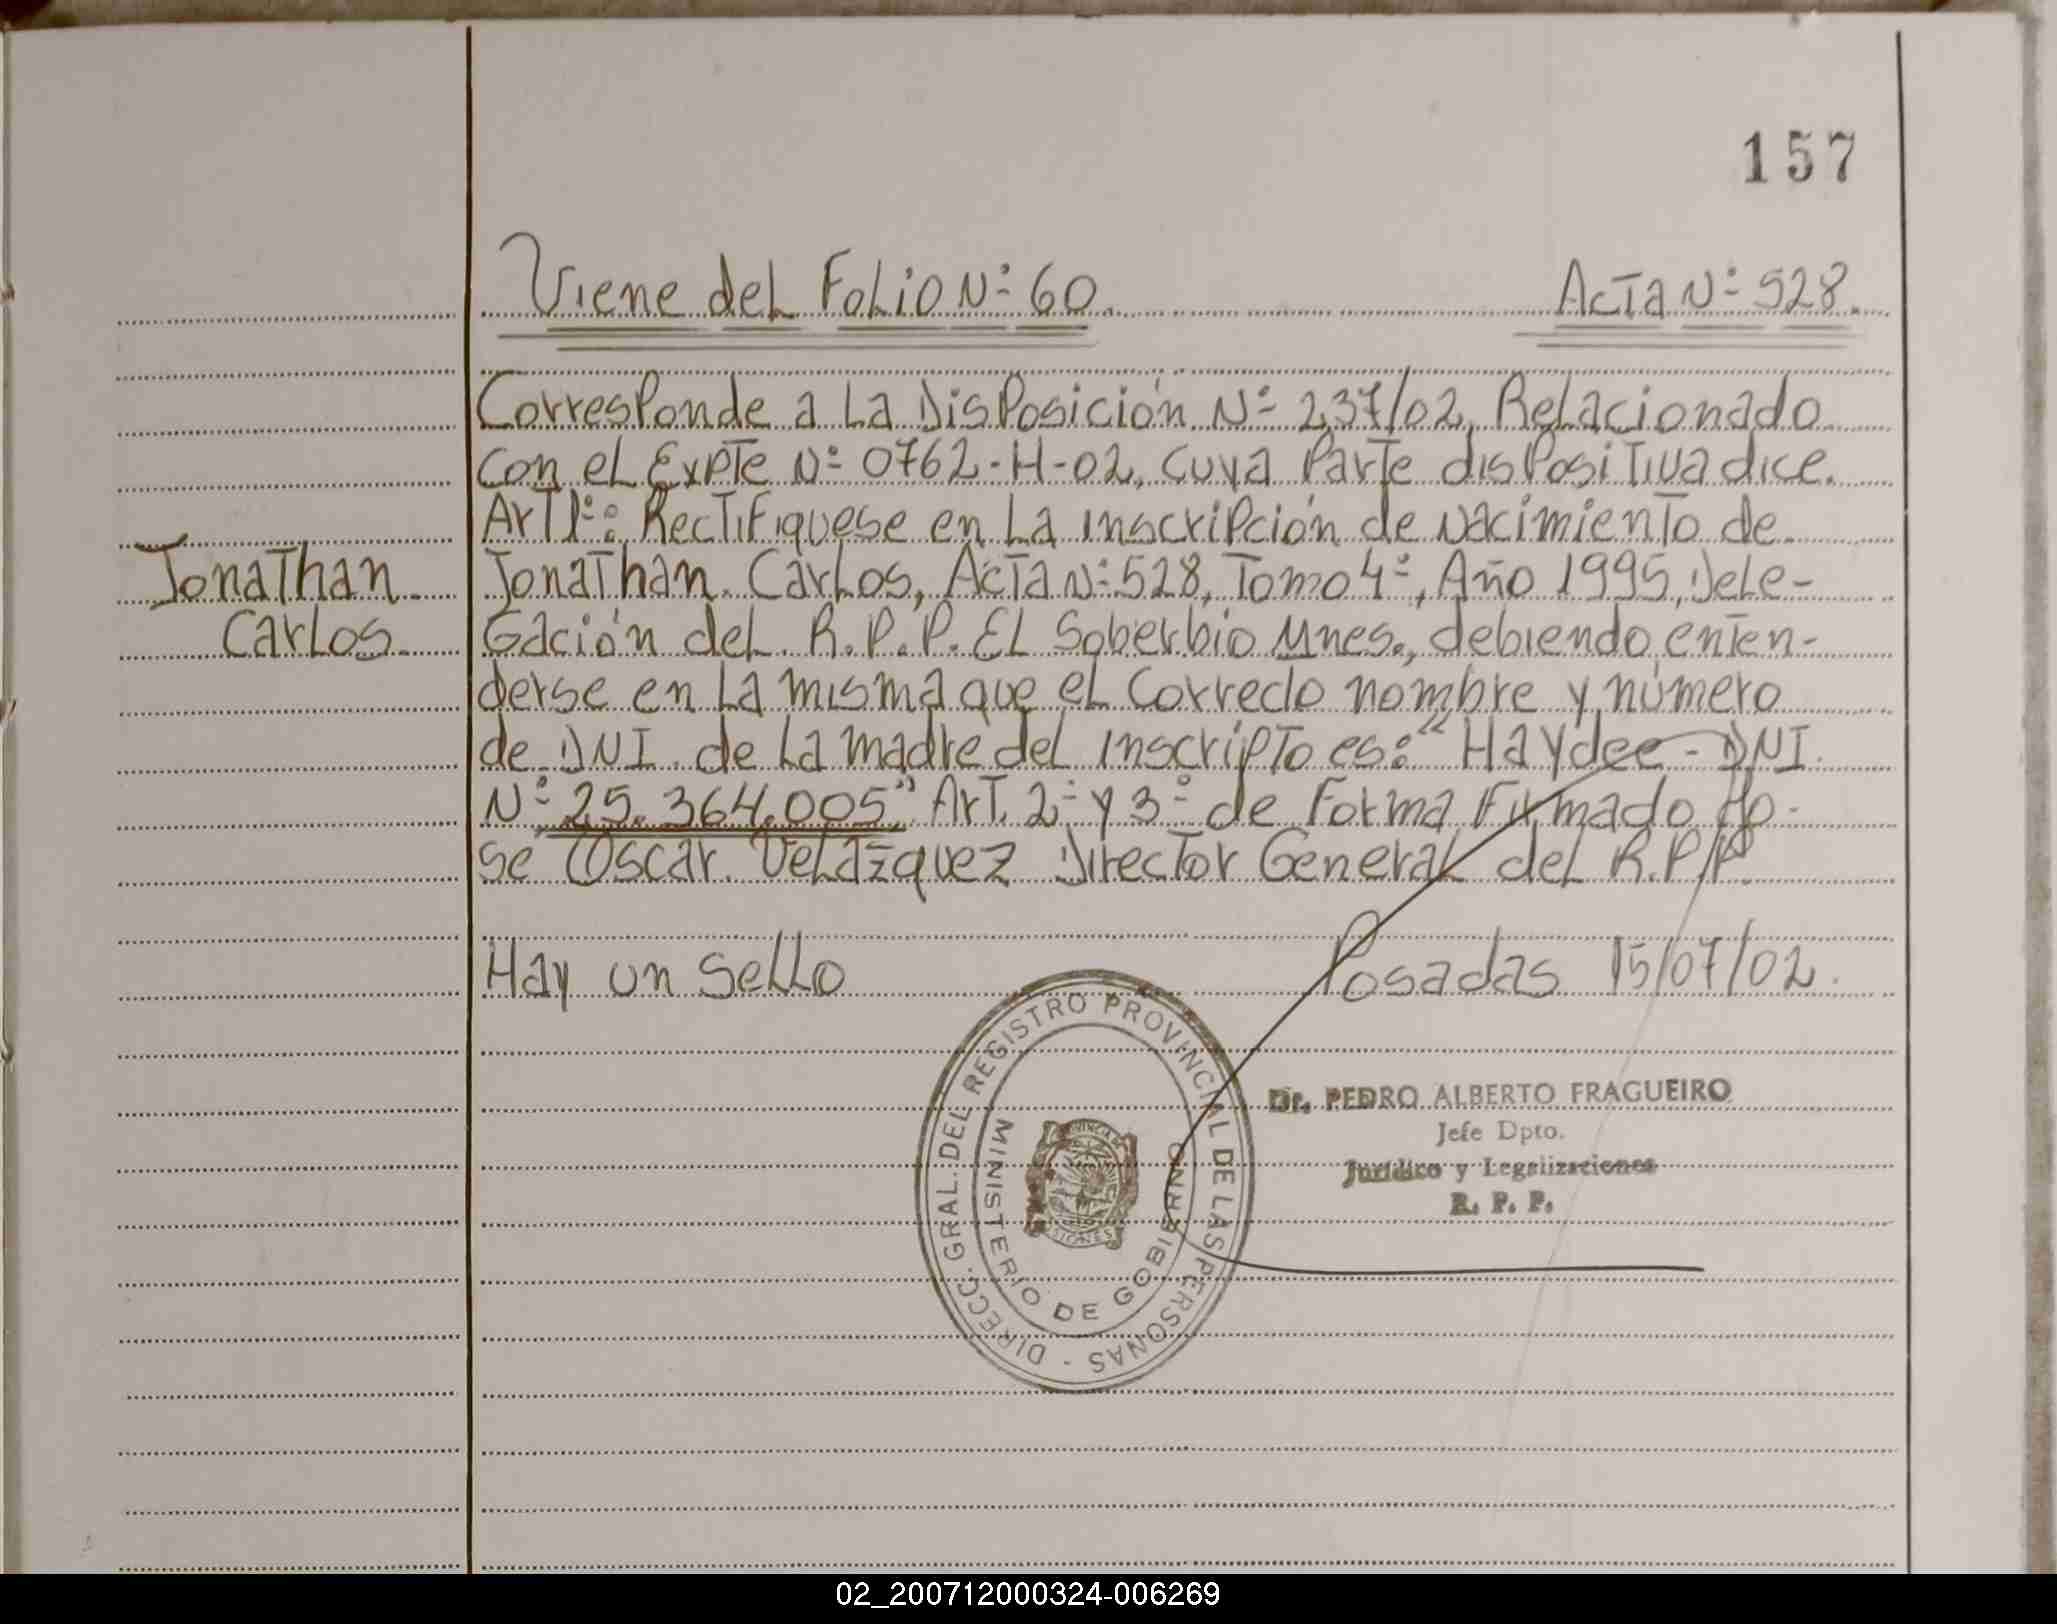 157
Viene del Folio Nº 60.
Acta Nº 528.
Corresponde a la Disposición Nº 237/02, Relacionado
con el Expte Nº 0762-H-02, cuya Parte disPositiva dice.
Art 1º: Rectifiquese en la inscripción de Nacimiento de
Jonathan
Jonathan. Carlos, Acta Nº 528, Tomo 4º, Año 1995, Dele-
Carlos.
Gación del. R.P.P. El Soberbio Mnes., debiendo enten-
derse en la misma que el Correcto nombre y número
de DNI. de la madre del inscripto es: “Haydee - DNI.
Nº 25.364.005” Art. 2º y 3º de Forma Firmado Jo-
se Oscar. Velazquez Director General del R.P.P.
Hay un Sello
Posadas 15/07/02.
DIRECC. GRAL. DEL REGISTRO PROVINCIAL DE LAS PERSONAS -
MINISTERIO DE GOBIERNO
PROVINCIA DE
MISIONES
Dr. PEDRO ALBERTO FRAGUEIRO
Jefe Dpto.
Jurídico y Legalizaciones
R. P. P.
02_200712000324-006269